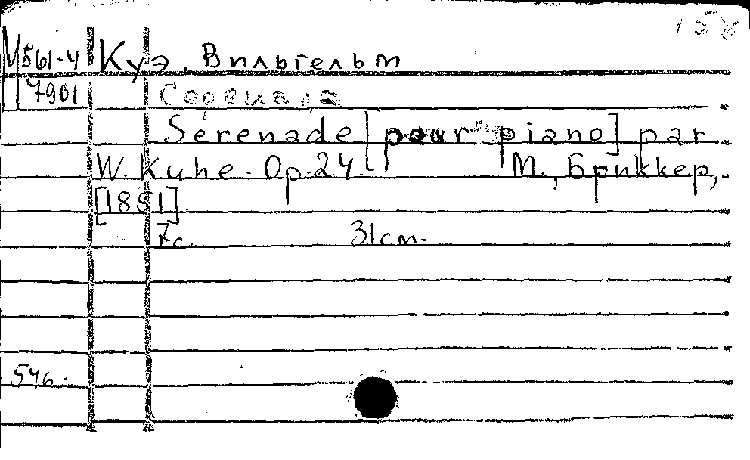 158
М561-4 Куэ, Вильгельм
7901
Серенада
Sérénade [pour piano] par
W. Kuhe. Op. 24 М., Бриккер,
[1851]
7с. 31см.
546.